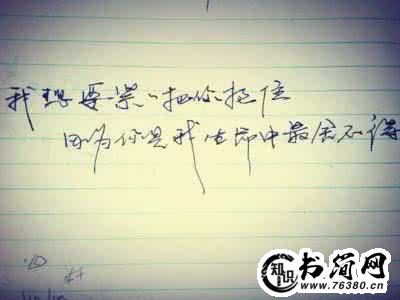 我想要紧紧把你抱住
因为你是我生命中最舍不得
知识
书简网
www.76380.cn